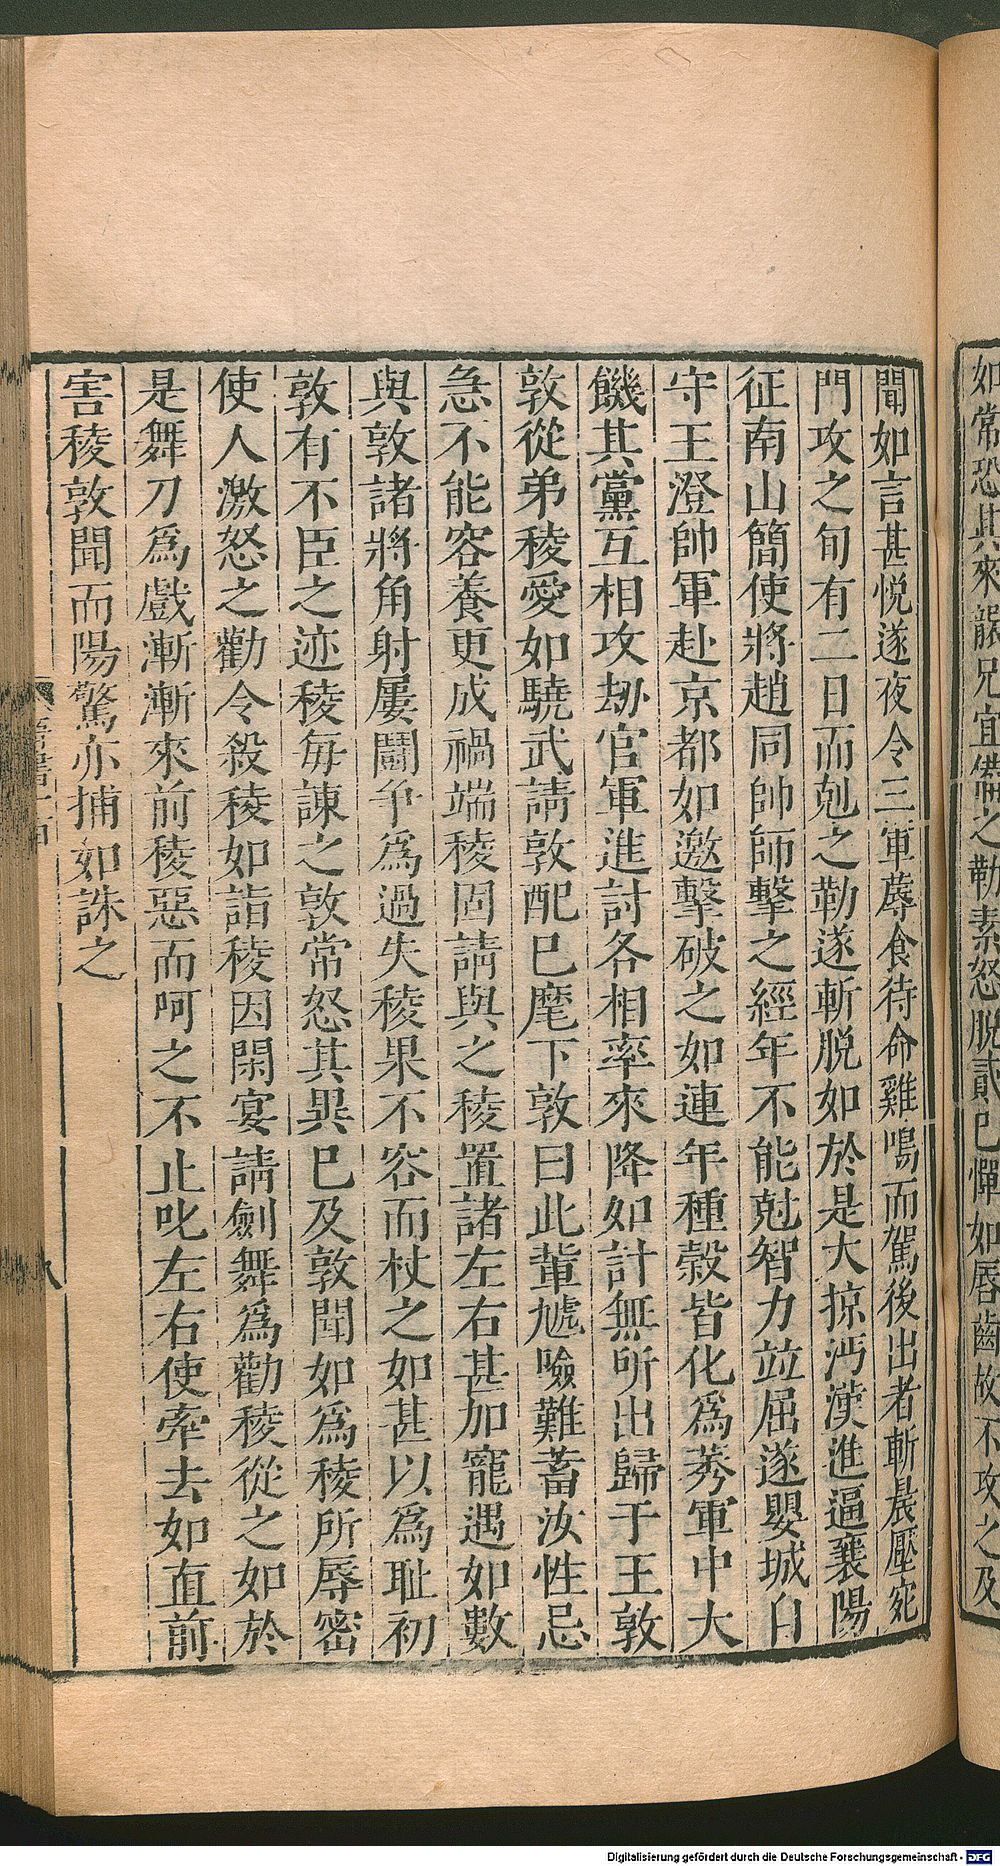 如常恐其來襲兄宜備之勒素怒脫貳已憚如唇齒故不攻之及
聞如言甚悅遂夜令三軍蓐食待命雞鳴而駕後出者斬晨壓宛
門攻之旬有二日而剋之勒遂斬脫如於是大掠沔漢進逼襄陽
征南山簡使將趙同帥師擊之經年不能尅智力竝屈遂嬰城自
守王澄帥軍赴京都如邀擊破之如連年種穀皆化為莠軍中大
饑其黨互相攻劫官軍進討各相率來降如計無所出歸于王敦
敦從弟稜愛如驍武請敦配已麾下敦曰此輩虓嶮難蓄汝性忌
急不能容養更成禍端稜固請與之稜置諸左右甚加寵遇如數
與敦諸將角射屢鬬爭為過失稜果不容而杖之如甚以為恥初
敦有不臣之迹稜每諫之敦常怒其異已及敦聞如為稜所辱密
使人激怒之勸令殺稜如詣稜因閑宴請劍舞為勸稜從之如於
是舞刀為戲漸漸來前稜惡而呵之不止叱左右使牽去如直前
害稜敦聞而陽驚亦捕如誅之
八
Digitalisierung gefördert durch die Deutsche Forschungsgemeinschaft - DFG